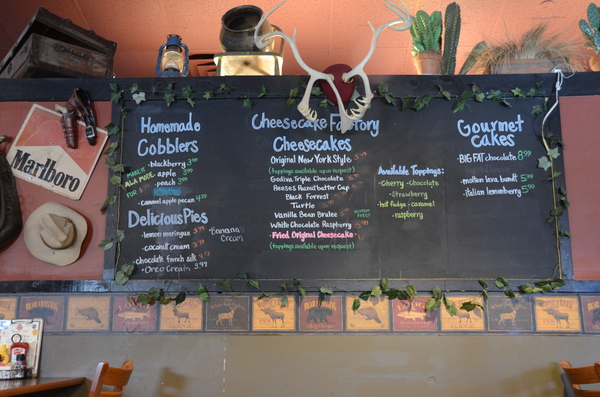 Marlboro
Homemade
Cobblers
•blackberry 3.99
MAKE IT
ALA MODE
FOR
apple 3.99
•peach 3.99
•caramel apple pecan 4.20
Delicious Pies
•lemon meringue
•coconut cream
•chocolate french silk
•Oreo Cream 3.99
•Banana
Cream
Cheesecake Factory
Cheesecakes
Original New York Style
(toppings available upon request)
Godiva Triple Chocolate
Reeses Peanutbutter Cup
Black Forrest
Turtle
Vanilla Bean Brulee
GLUTEN
FREE!
White Chocolate Raspberry
•Fried Original Cheesecake
(toppings available upon request)
Available Toppings:
•Cherry •Chocolate
•Strawberry
•hot fudge •caramel
•raspberry
Gourmet
Cakes
•BIG FAT chocolate 8.99
•molten lava bundt 5.99
•italian lemonberry 5.99